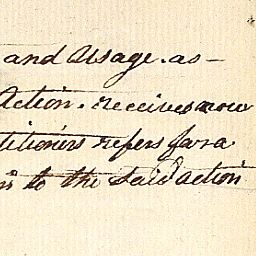 and Usage. as —
Action. receives now
titioners refers for a
n's to the said action